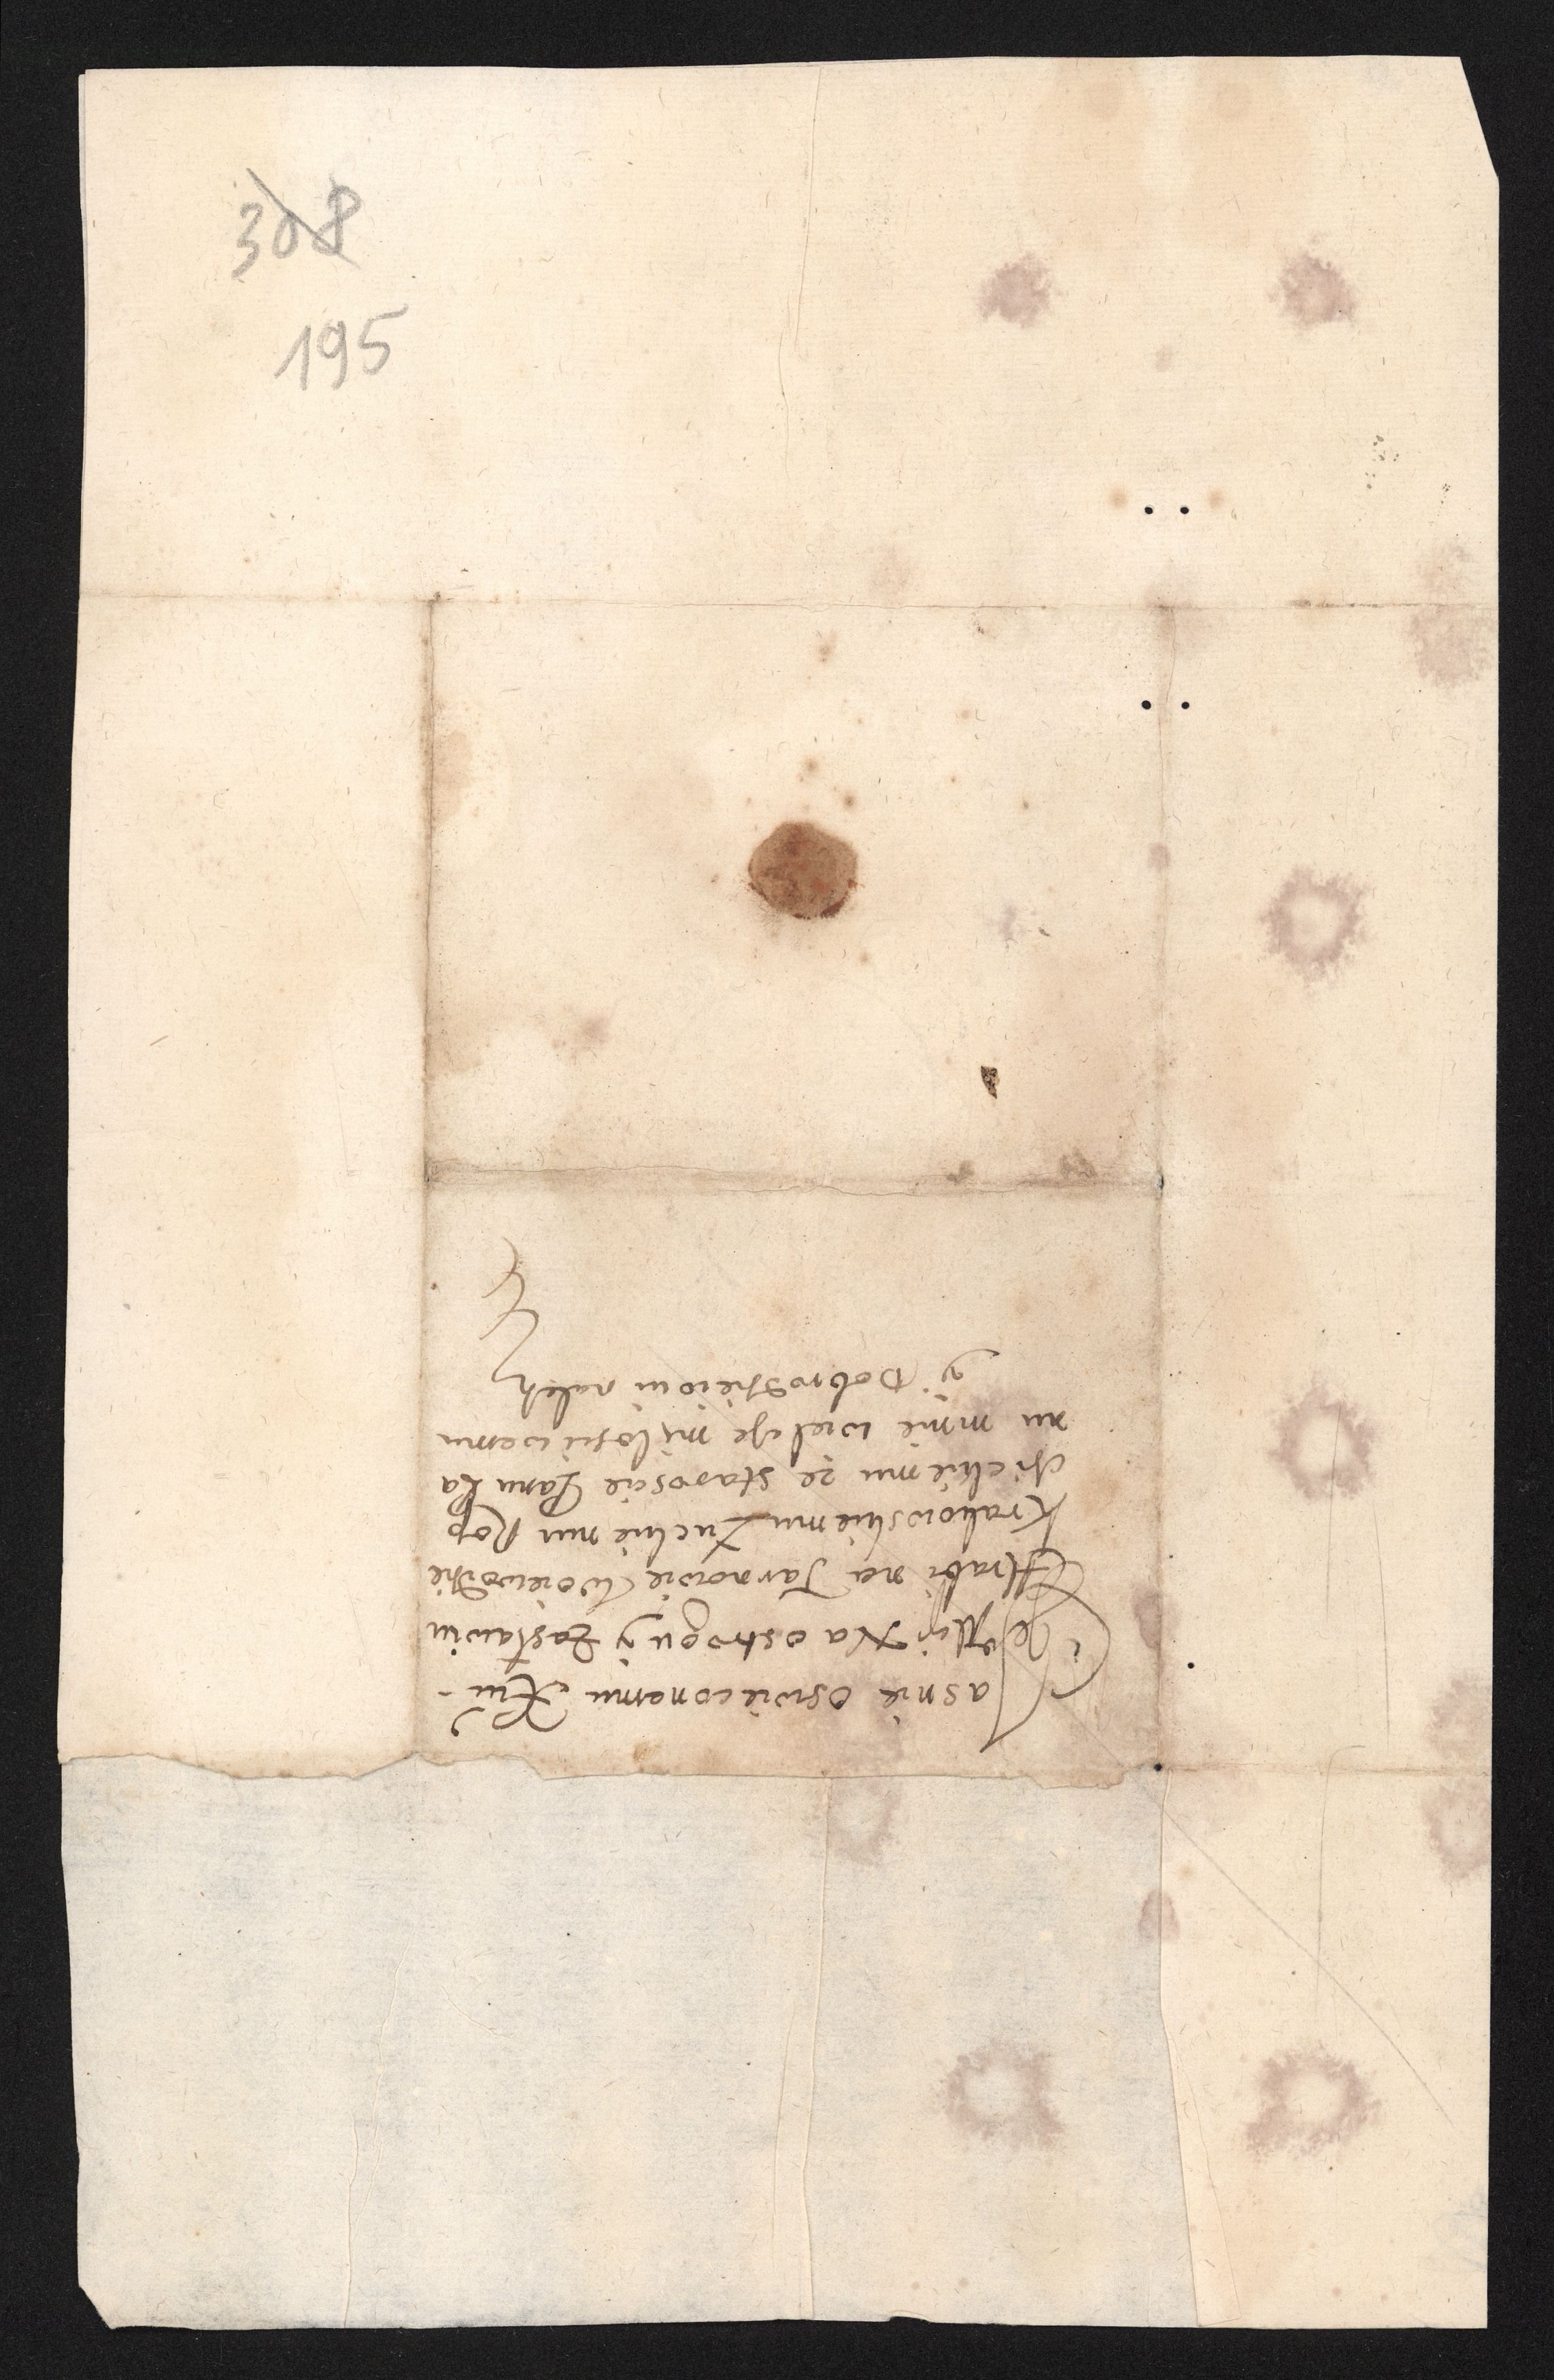 308
195
Jasnie oswieconemu Xiu-
Na ostrogu y Zasławiu
Hrabi na Tarnowie Woiewodzie
Krakowskiemu Łuckiemu Rop
cickiemu ze staroscie Panu Pa
nu mnie wielce miłosciwemu
y Dobrodzieiowi